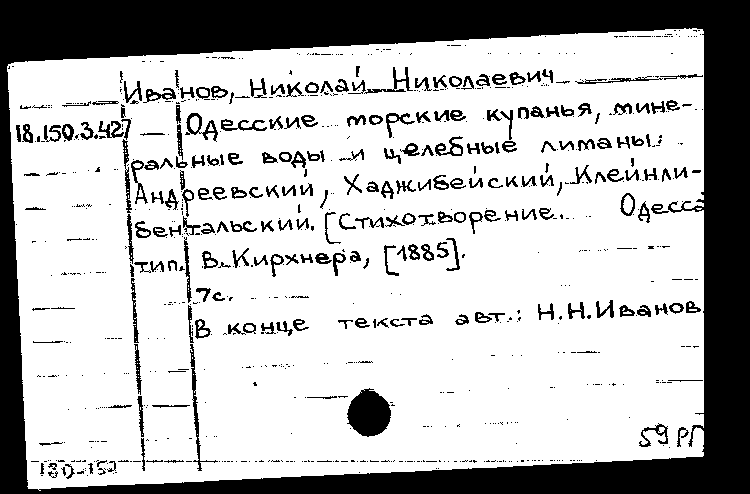 Иванов, Николай Николаевич
18.150.3.427 Одесские морские купанья, мине-
ральные воды и целебные лиманы:
Андреевский, Хаджибейский, Клейнли-
бентальский. [Стихотворение. Одесса
тип. В. Кирхнера, [1885].
7с.
В конце текста авт.: Н.Н.Иванов.
59 РП
180-152